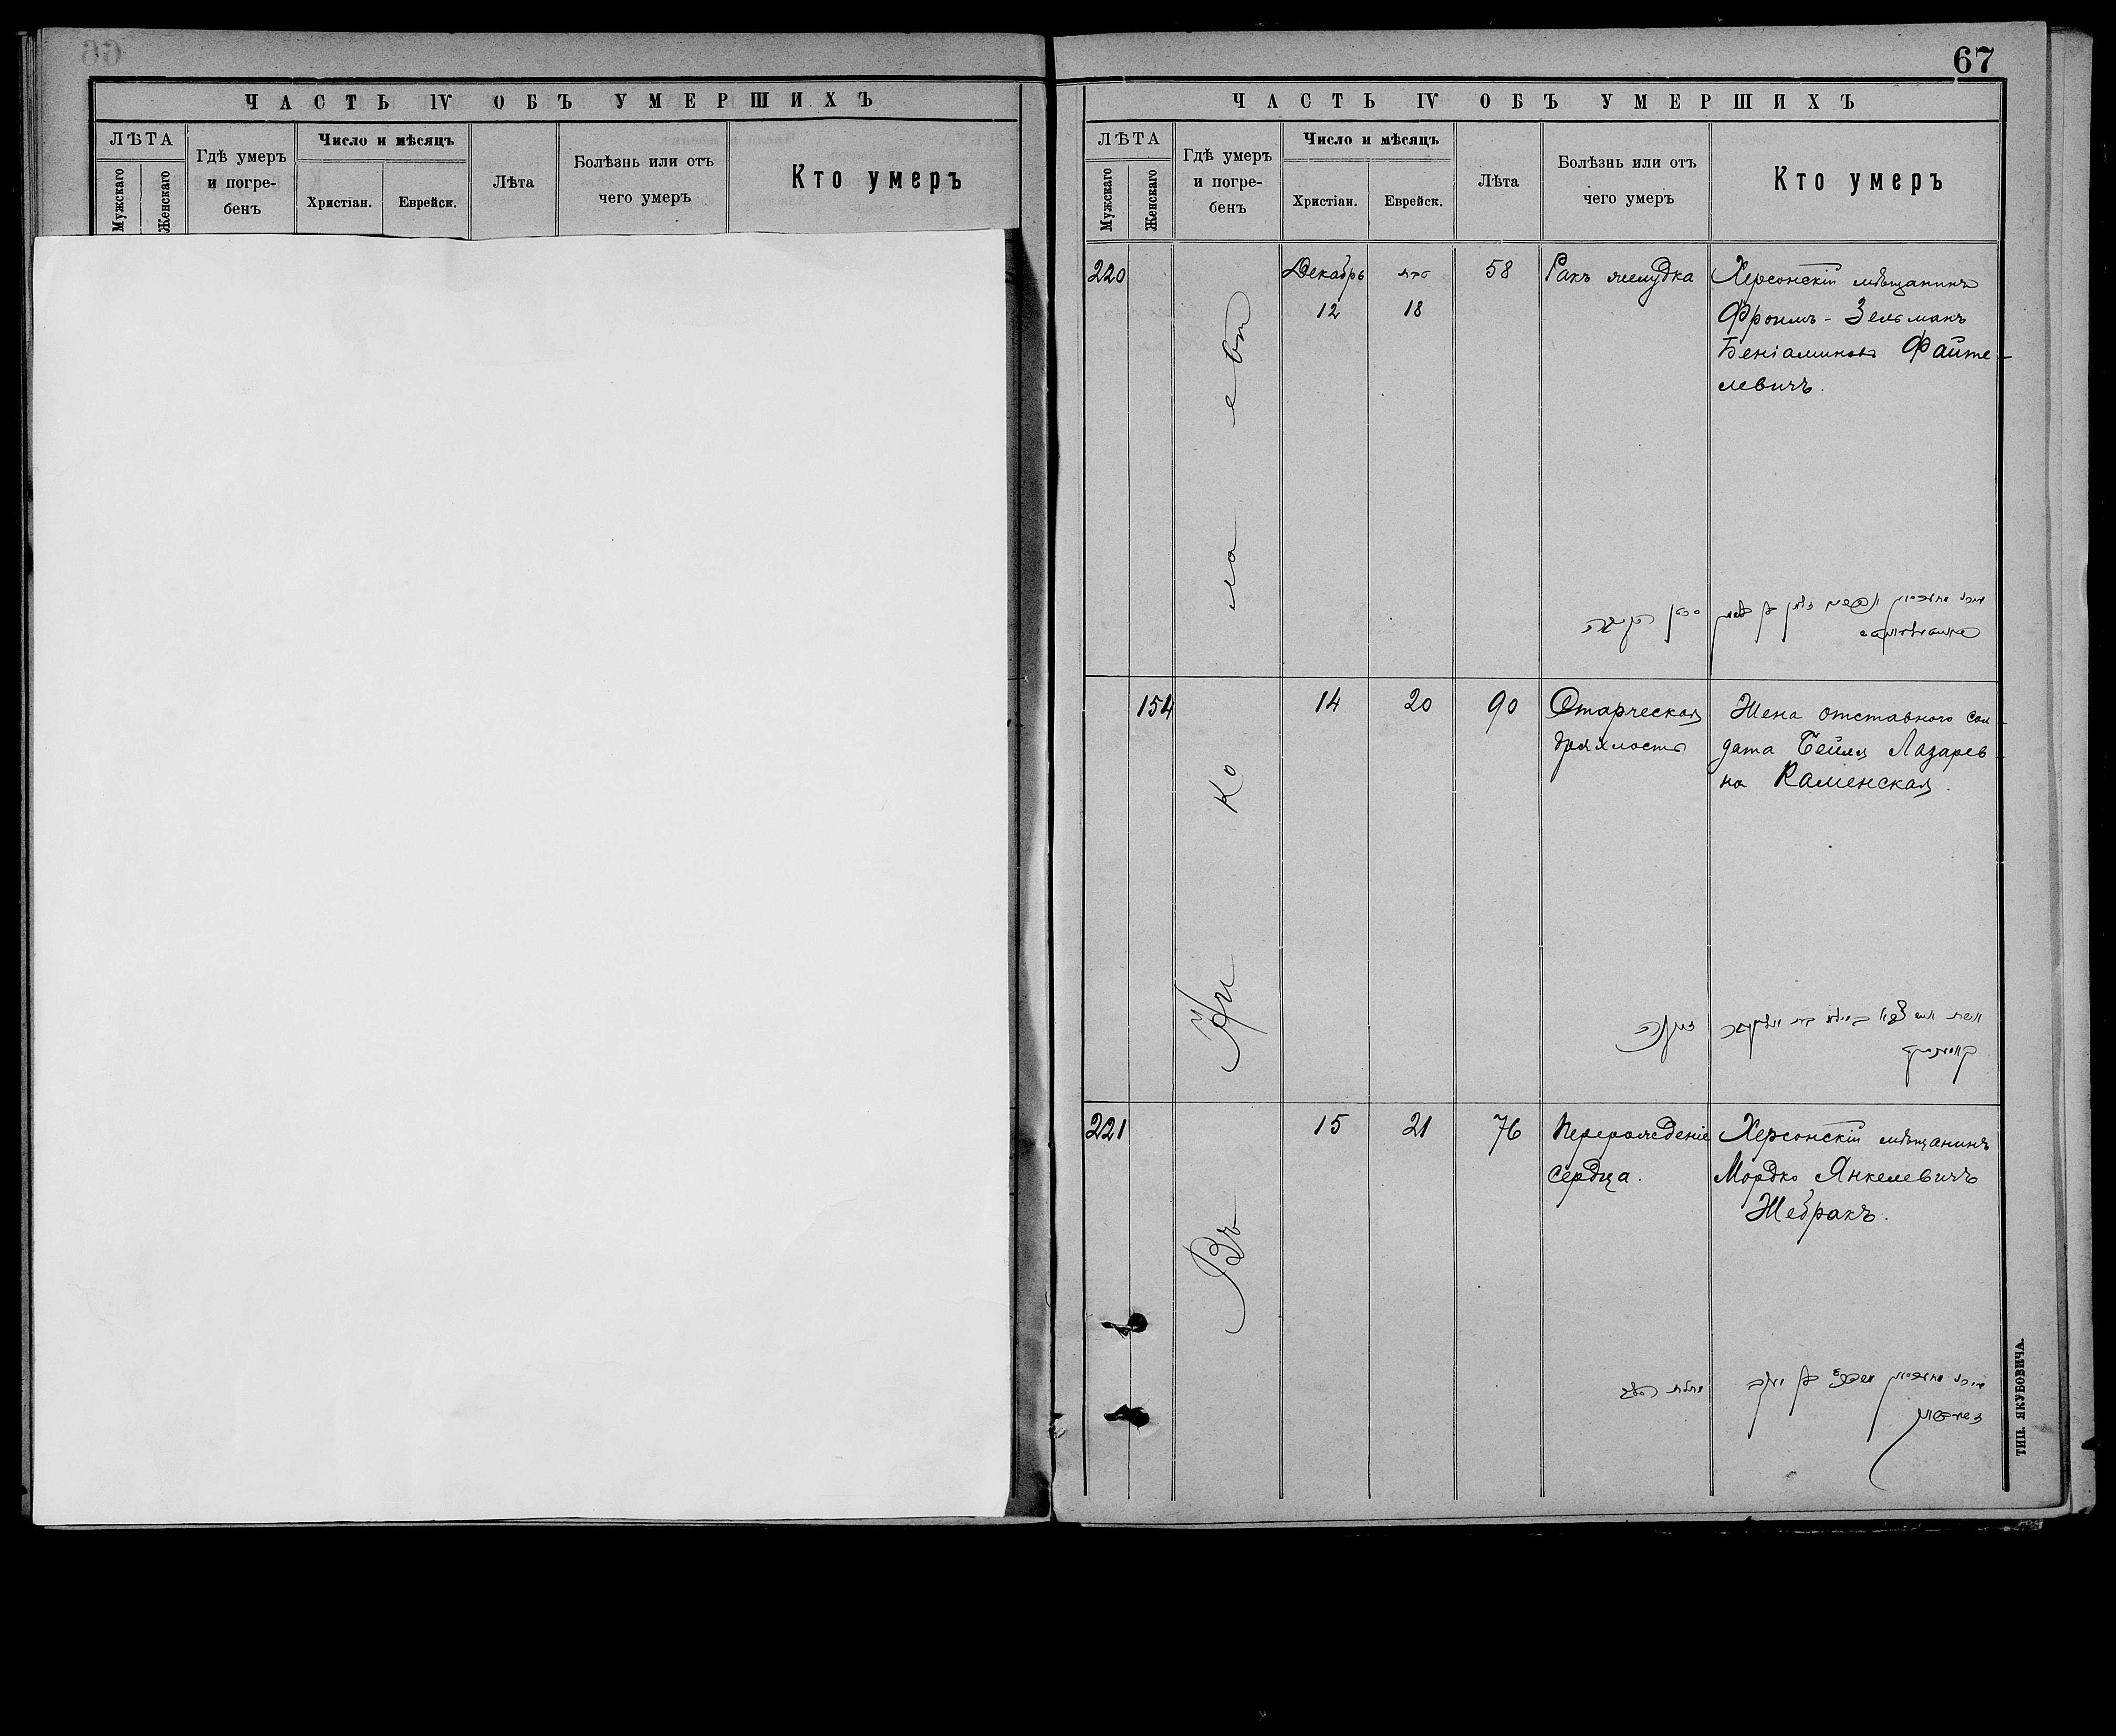 67
ЧАСТЬ IV ОБЪ УМЕРШИХЪ
ЛѢТА
Мужскаго
Женскаго
Гдѣ умеръ
и погре-
бенъ
Число и мѣсяцъ
Христіан.
Еврейск.
Лѣта
Болѣзнь или отъ
чего умеръ
Кто умеръ
ЧАСТЬ IV ОБЪ УМЕРШИХЪ
ЛѢТА
Мужскаго
Женскаго
Гдѣ умеръ
и погре-
бенъ
Число и мѣсяцъ
Христіан.
Еврейск.
Лѣта
Болѣзнь или отъ
чего умеръ
Кто умеръ
Въ Николаевѣ
220
Декабрь
12
טבת
18
58
Ракъ желудка
Херсонскій мѣщанинъ
Фроимъ-Зельманъ
Беніаминовъ Файте-
левичъ.
154
14
20
90
Старческая
дряхлость
Жена отставного сол-
дата Бейля Лазарев-
на Каменская.
זקנה
221
15
21
76
Перерожденіе
сердца.
Херсонскій мѣщанинъ
Мордко Янкелевичъ
Жебракъ.
מחלת הלב
ТИП. ЯКУБОВИЧА.